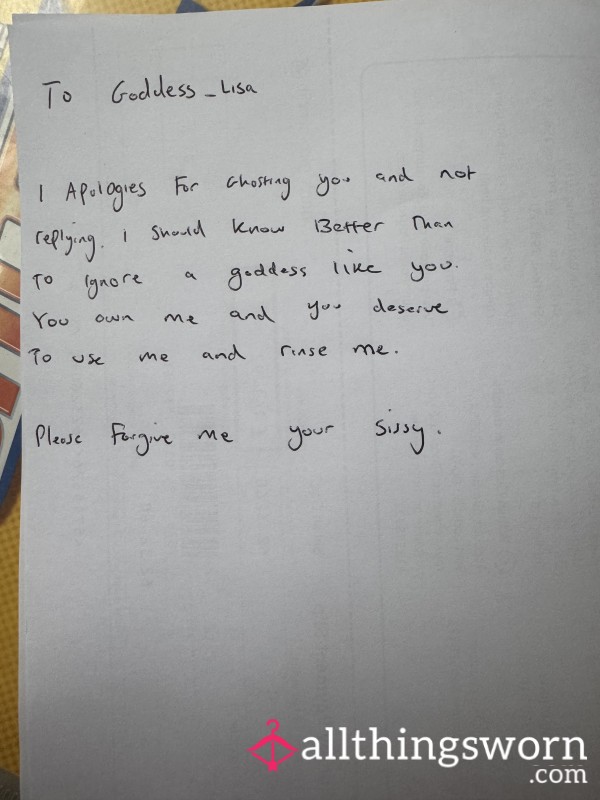 To Goddess_Lisa
I Apologies For Ghosting you and not
replying. I should know Better Than
To Ignore a goddess like you.
You own me and you deserve
To use me and rinse me.
Please Forgive me your sissy.
allthingsworn
.com